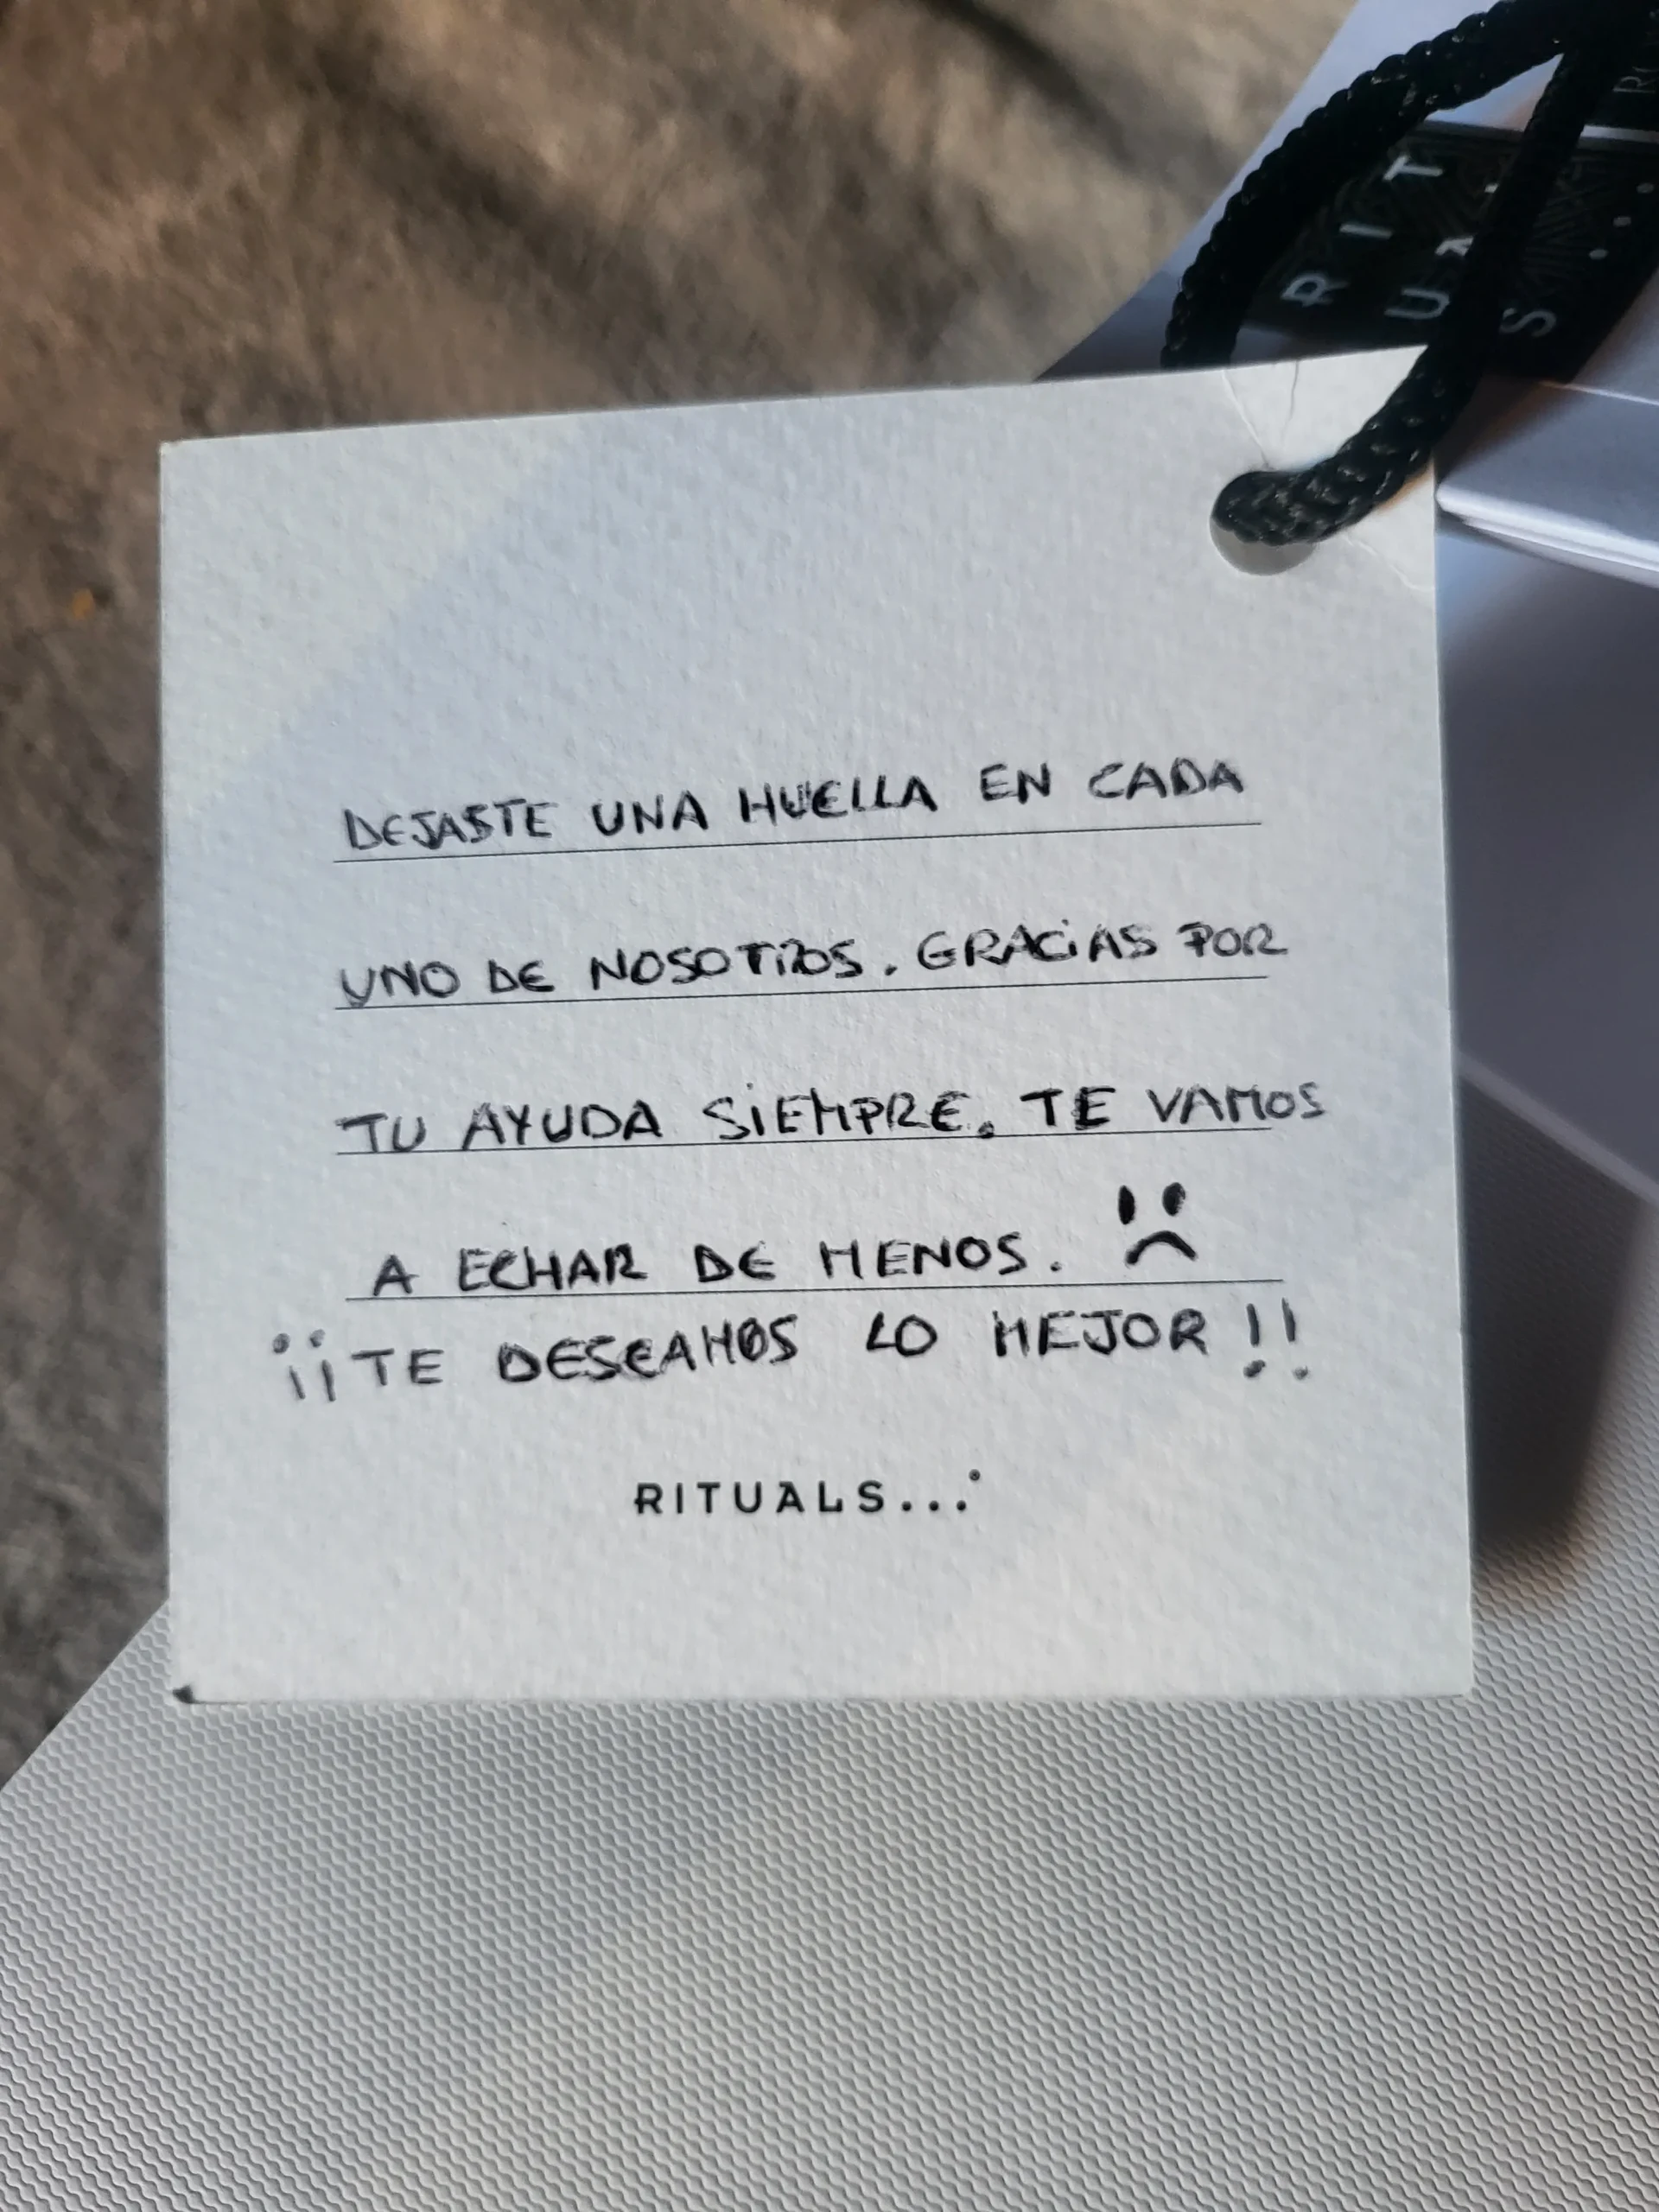 RIT
UAL
S...
DEJASTE UNA HUELLA EN CADA
UNO DE NOSOTROS. GRACIAS POR
TU AYUDA SIEMPRE. TE VAMOS
A ECHAR DE MENOS. :(
¡¡TE DESEAMOS LO MEJOR!!
RITUALS...